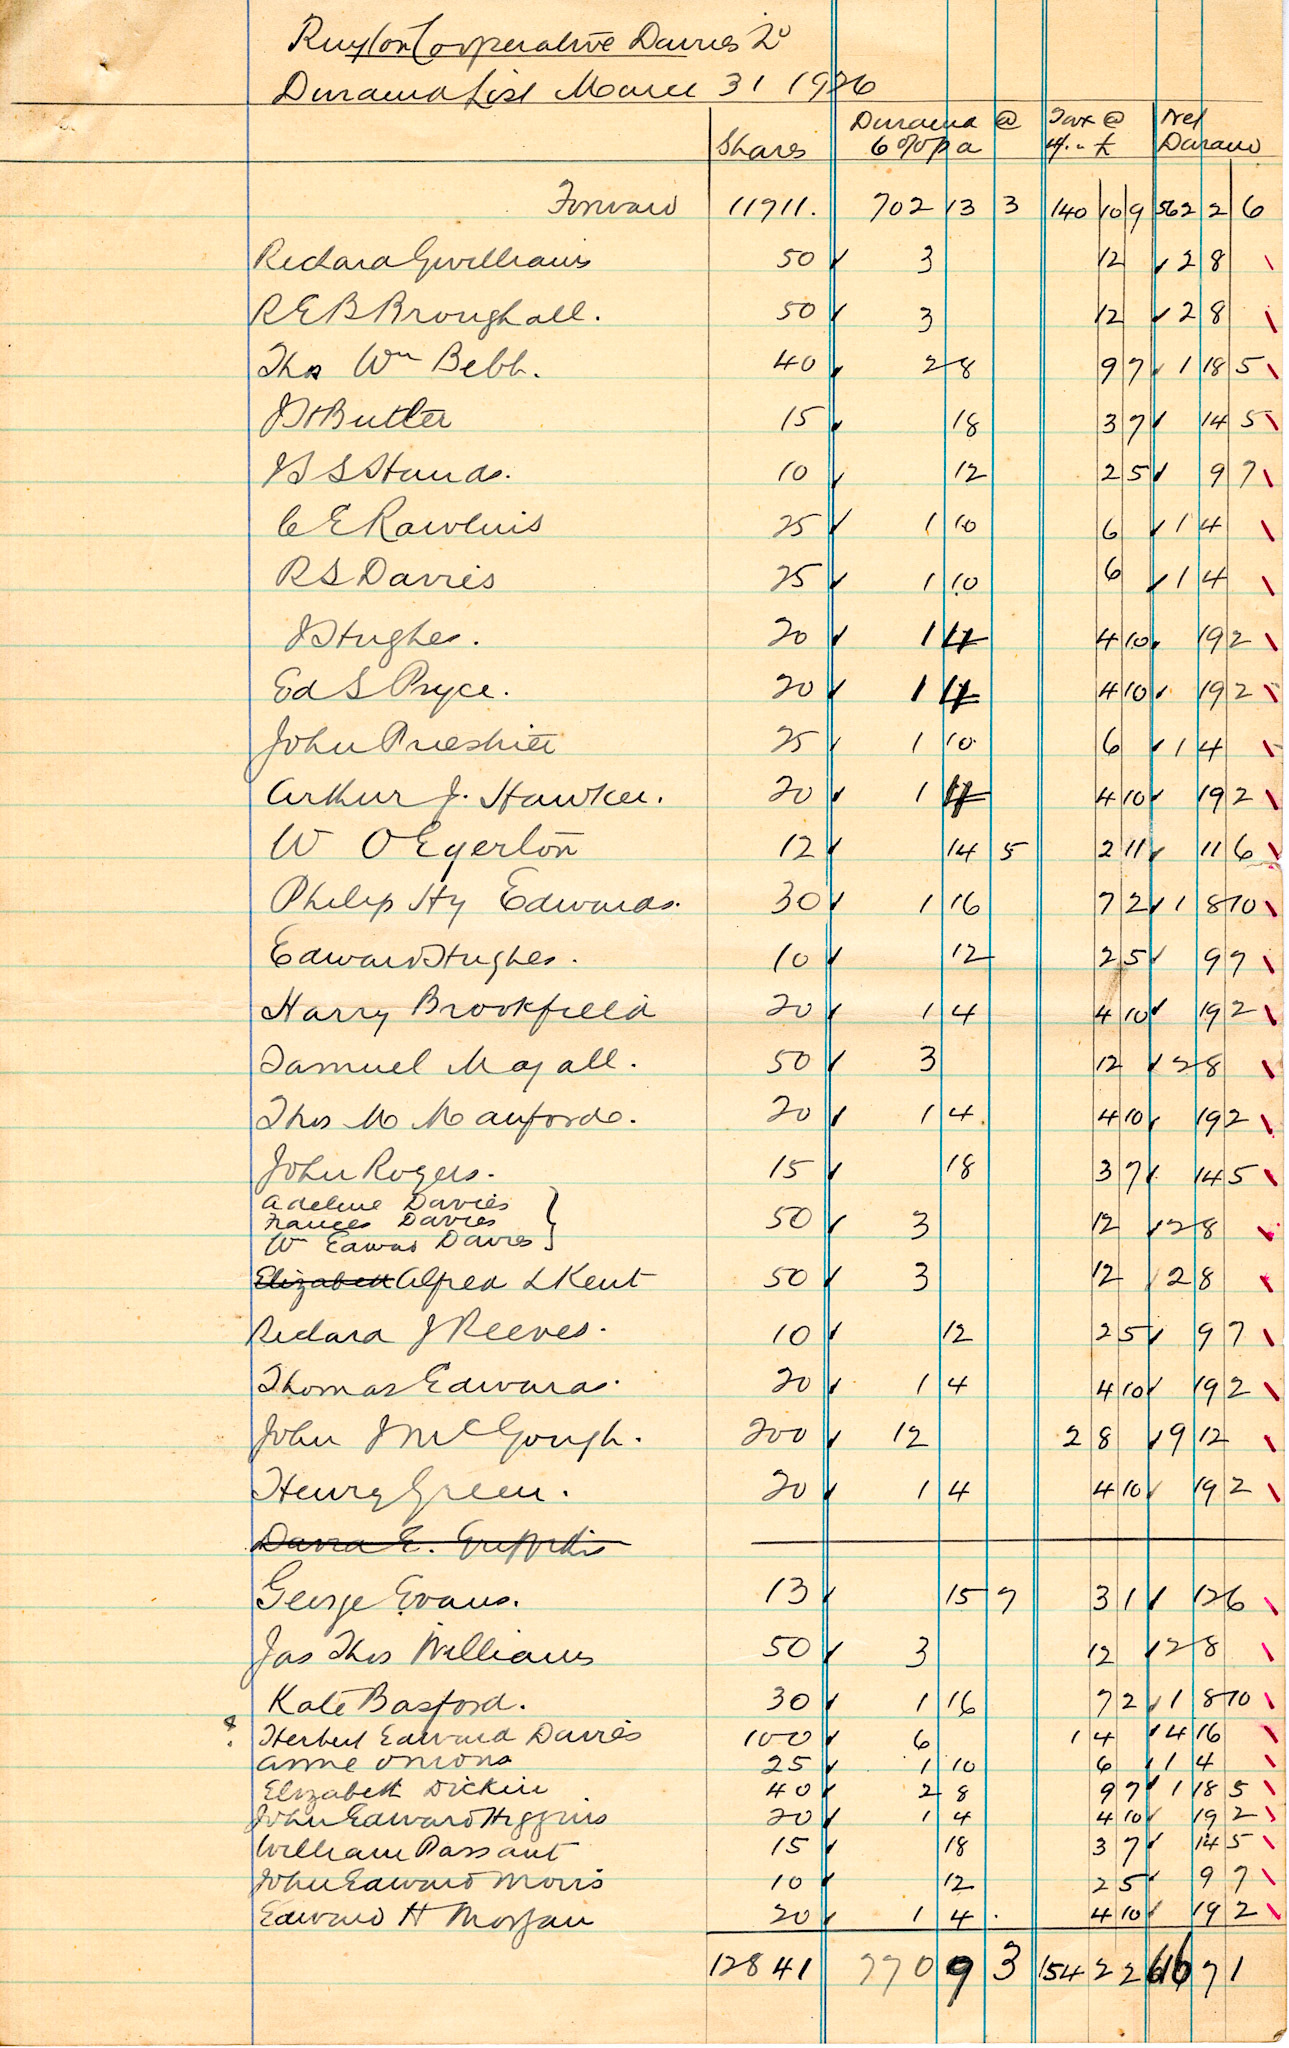 Ruyton Cooperative Dairies Ld
Dividend List March 31 1926
Shares Dividend @ 6 % p a Tax @ 4/- £ Net Dividend
Forward 11711. 702 13 3 140 10 9 562 2 6
Richard Gwilliams 50 3 12 2 8
R E B Broughall. 50 3 12 2 8
Thos Wm Bebb. 40 2 8 9 7 1 18 5
J H Butler 15 18 3 7 14 5
J S Hands. 10 12 2 5 9 7
C E Rawlins 25 1 10 6 1 4
R S Davies 25 1 10 6 1 4
J Hughes. 20 1 4 4 10 19 2
Ed S Pryce. 20 1 4 4 10 19 2
John 25 1 10 6 1 4
Arthur J. Hawker. 20 1 4 4 10 19 2
W O Egerton 12 14 5 2 11 11 6
Philip Hy Edwards. 30 1 16 7 2 1 8 10
Edward Hughes. 10 12 2 5 9 7
Harry Brookfield 20 1 4 4 10 19 2
Samuel Magall. 50 3 12 2 8
Thos M Manford. 20 1 4 4 10 19 2
John Rogers. 15 18 3 7 14 5
Adeline Davies
Frances Davies } 50 3 12 2 8
Wm Edward Davies
Elizabeth Alfred L Kent 50 3 12 2 8
Richard J Reeves. 10 12 2 5 9 7
Thomas Edwards. 20 1 4 4 10 19 2
John J McGough. 200 12 2 8 9 12
Henry Green. 20 1 4 4 10 19 2
David E. Griffiths
George Evans. 13 15 7 3 1 12 6
Jas Thos Williams 50 3 12 2 8
Kate Basford. 30 1 16 7 2 1 8 10
? Herbert Edward Davies 100 6 1 4 4 16
Annie Onions 25 1 10 6 1 4
Elizabeth Dickin 40 2 8 9 7 1 18 5
John Edward Higgins 20 1 4 4 10 19 2
William Passant 15 18 3 7 14 5
John Edward Morris 10 12 2 5 9 7
Edward H Morgan 20 1 4 . 4 10 19 2
12841 770 9 3 154 2 2 616 7 1